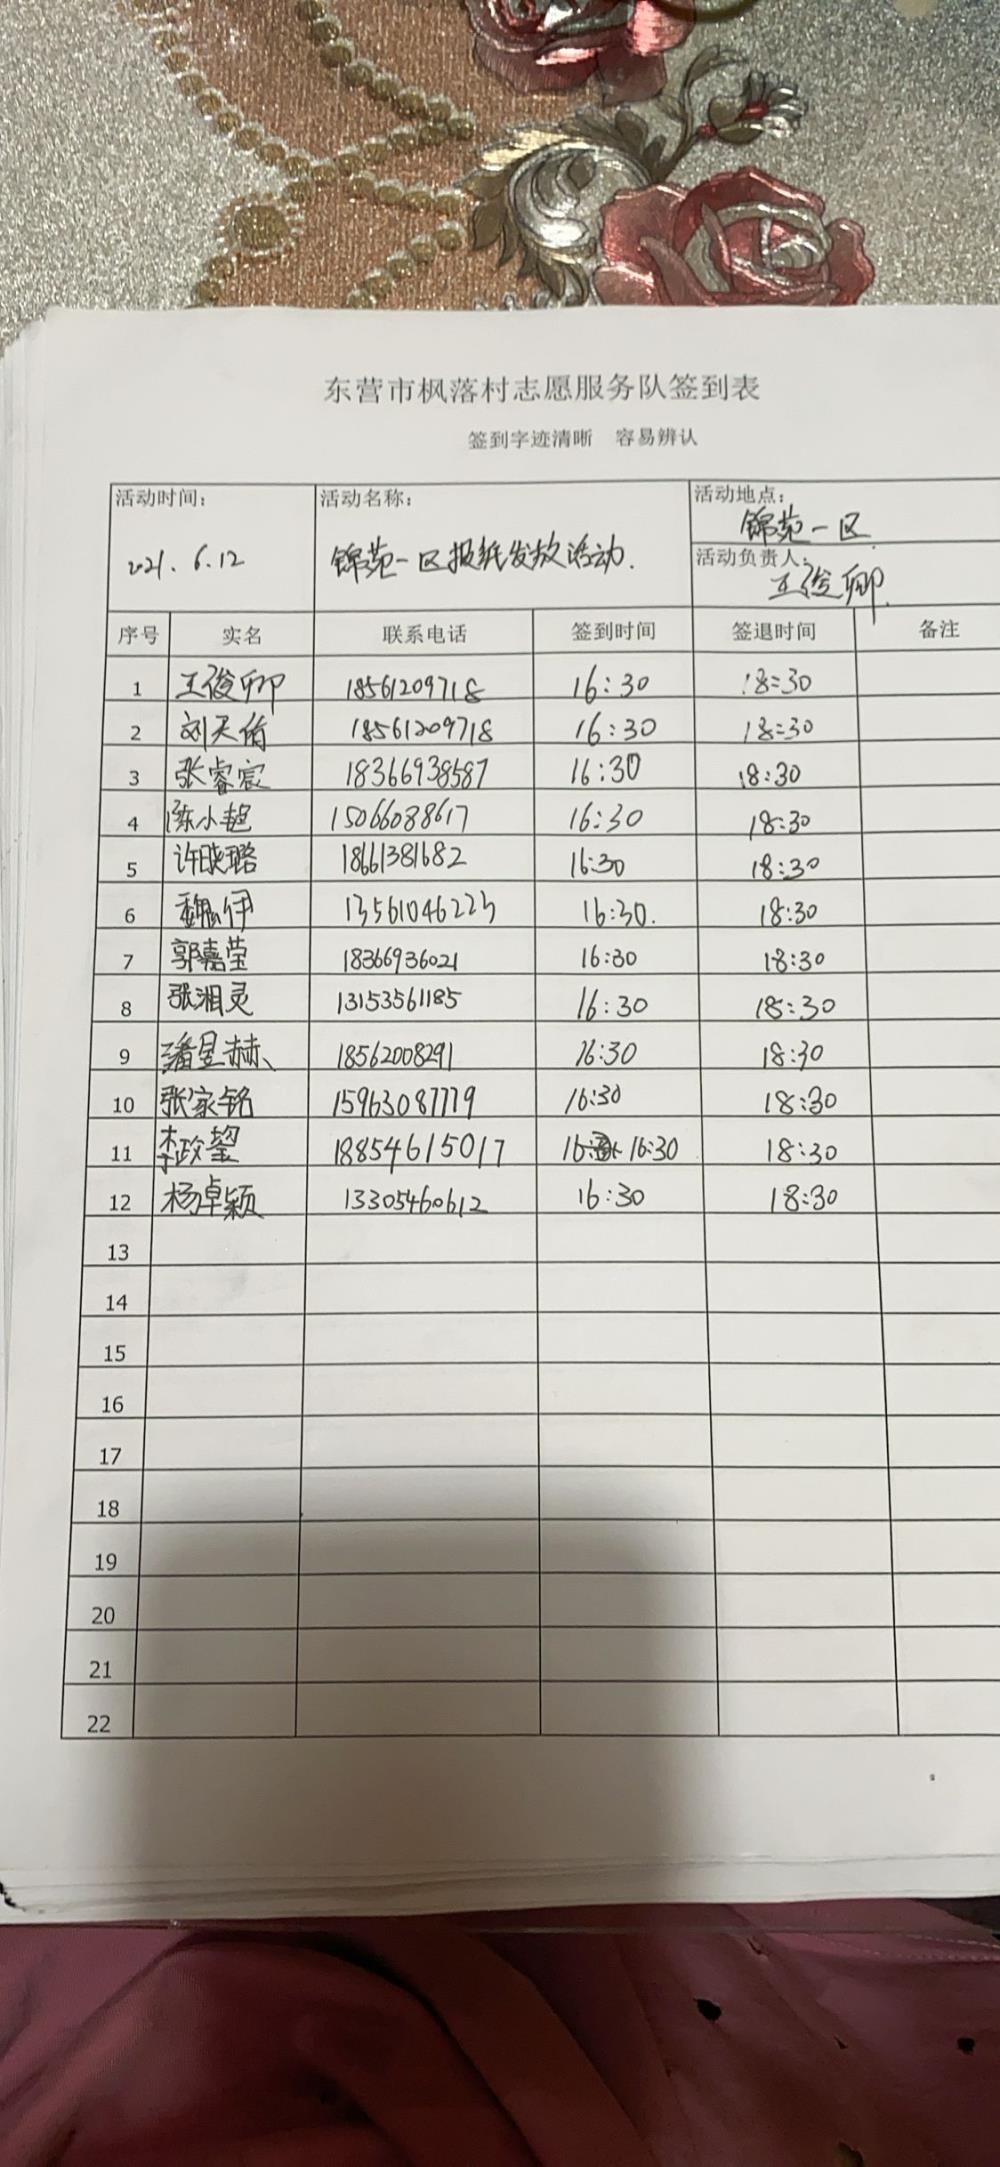 东营市枫落村志愿服务队签到表
签到字迹清晰 容易辨认
活动时间： 活动名称： 活动地点：
锦苑一区
2021.6.12 锦苑一区报纸发放活动. 活动负责人：
王俊卿.
序号 实名 联系电话 签到时间 签退时间 备注
1 王俊卿 18561209718 16:30 18:30
2 刘天佑 18561209718 16:30 18:30
3 张睿宸 18366938587 16:30 18:30
4 陈小艳 15066088617 16:30 18:30
5 许晓璐 18661381682 16:30 18:30
6 魏伊 13561046223 16:30. 18:30
7 郭嘉莹 18366936021 16:30 18:30
8 张湘灵 13153561185 16:30 18:30
9 潘昱赫 18562008291 16:30 18:30
10 张家铭 15963087779 16:30 18:30
11 李政 18854615017 16:30 18:30
12 杨卓颖 13305460612 16:30 18:30
13
14
15
16
17
18
19
20
21
22